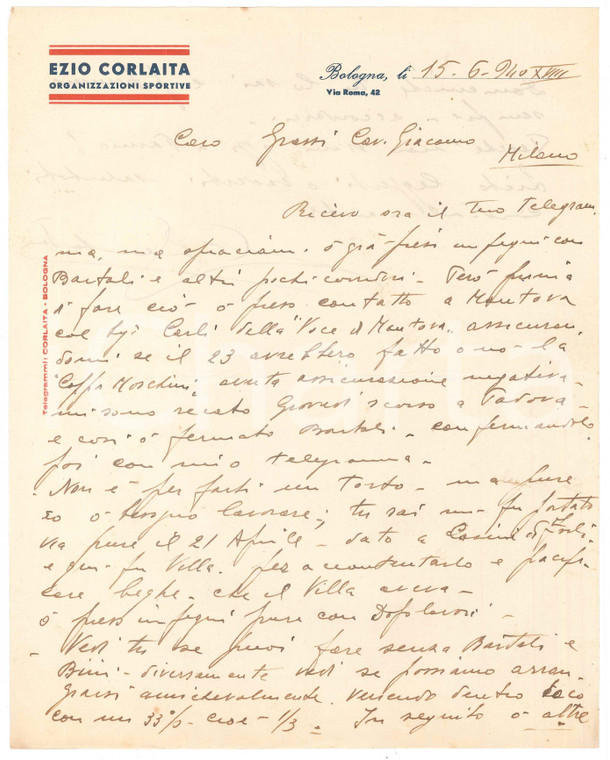 EZIO CORLAITA
ORGANIZZAZIONI SPORTIVE
Bologna, li 15-6-940 XVIII
Via Roma, 42
Caro Grassi Cav. Giacomo
Milano
Ricevo ora il tuo telegram
ma, ma spiaciam. ò già presi impegni con
Bartali e altri pochi corridori - Però prima
di fare ciò - ò preso contatto a Mantova
col Sig. Carli della "Voce di Mantova" assicuran
domi se il 23 avrebbero fatto o no - la
"Coppa Moschini" avuta assicurazione negativa -
mi sono recato Giovedì scorso a Padova -
e così ò fermato Bartali - confermandolo
poi con mio telegramma -
- Non è per farti un torto - ma pure
io ò bisogno lavorare; tu sai mi fu portato
via pure il 21 Aprile - dato a Casini di Forlì -
e qui fu Villa. per accontentarlo e pacifi
care beghe - che il Villa aveva -
ò presi impegni pure con Dopolavori -
- Vedi tu se puoi fare senza Bartali e
Bini - diversamente vedi se possiamo arran
giarsi amichevolmente. venendo dentro teco
con un 33% - cioè - 1/3 - In seguito ò altre
Telegrammi: CORLAITA - BOLOGNA